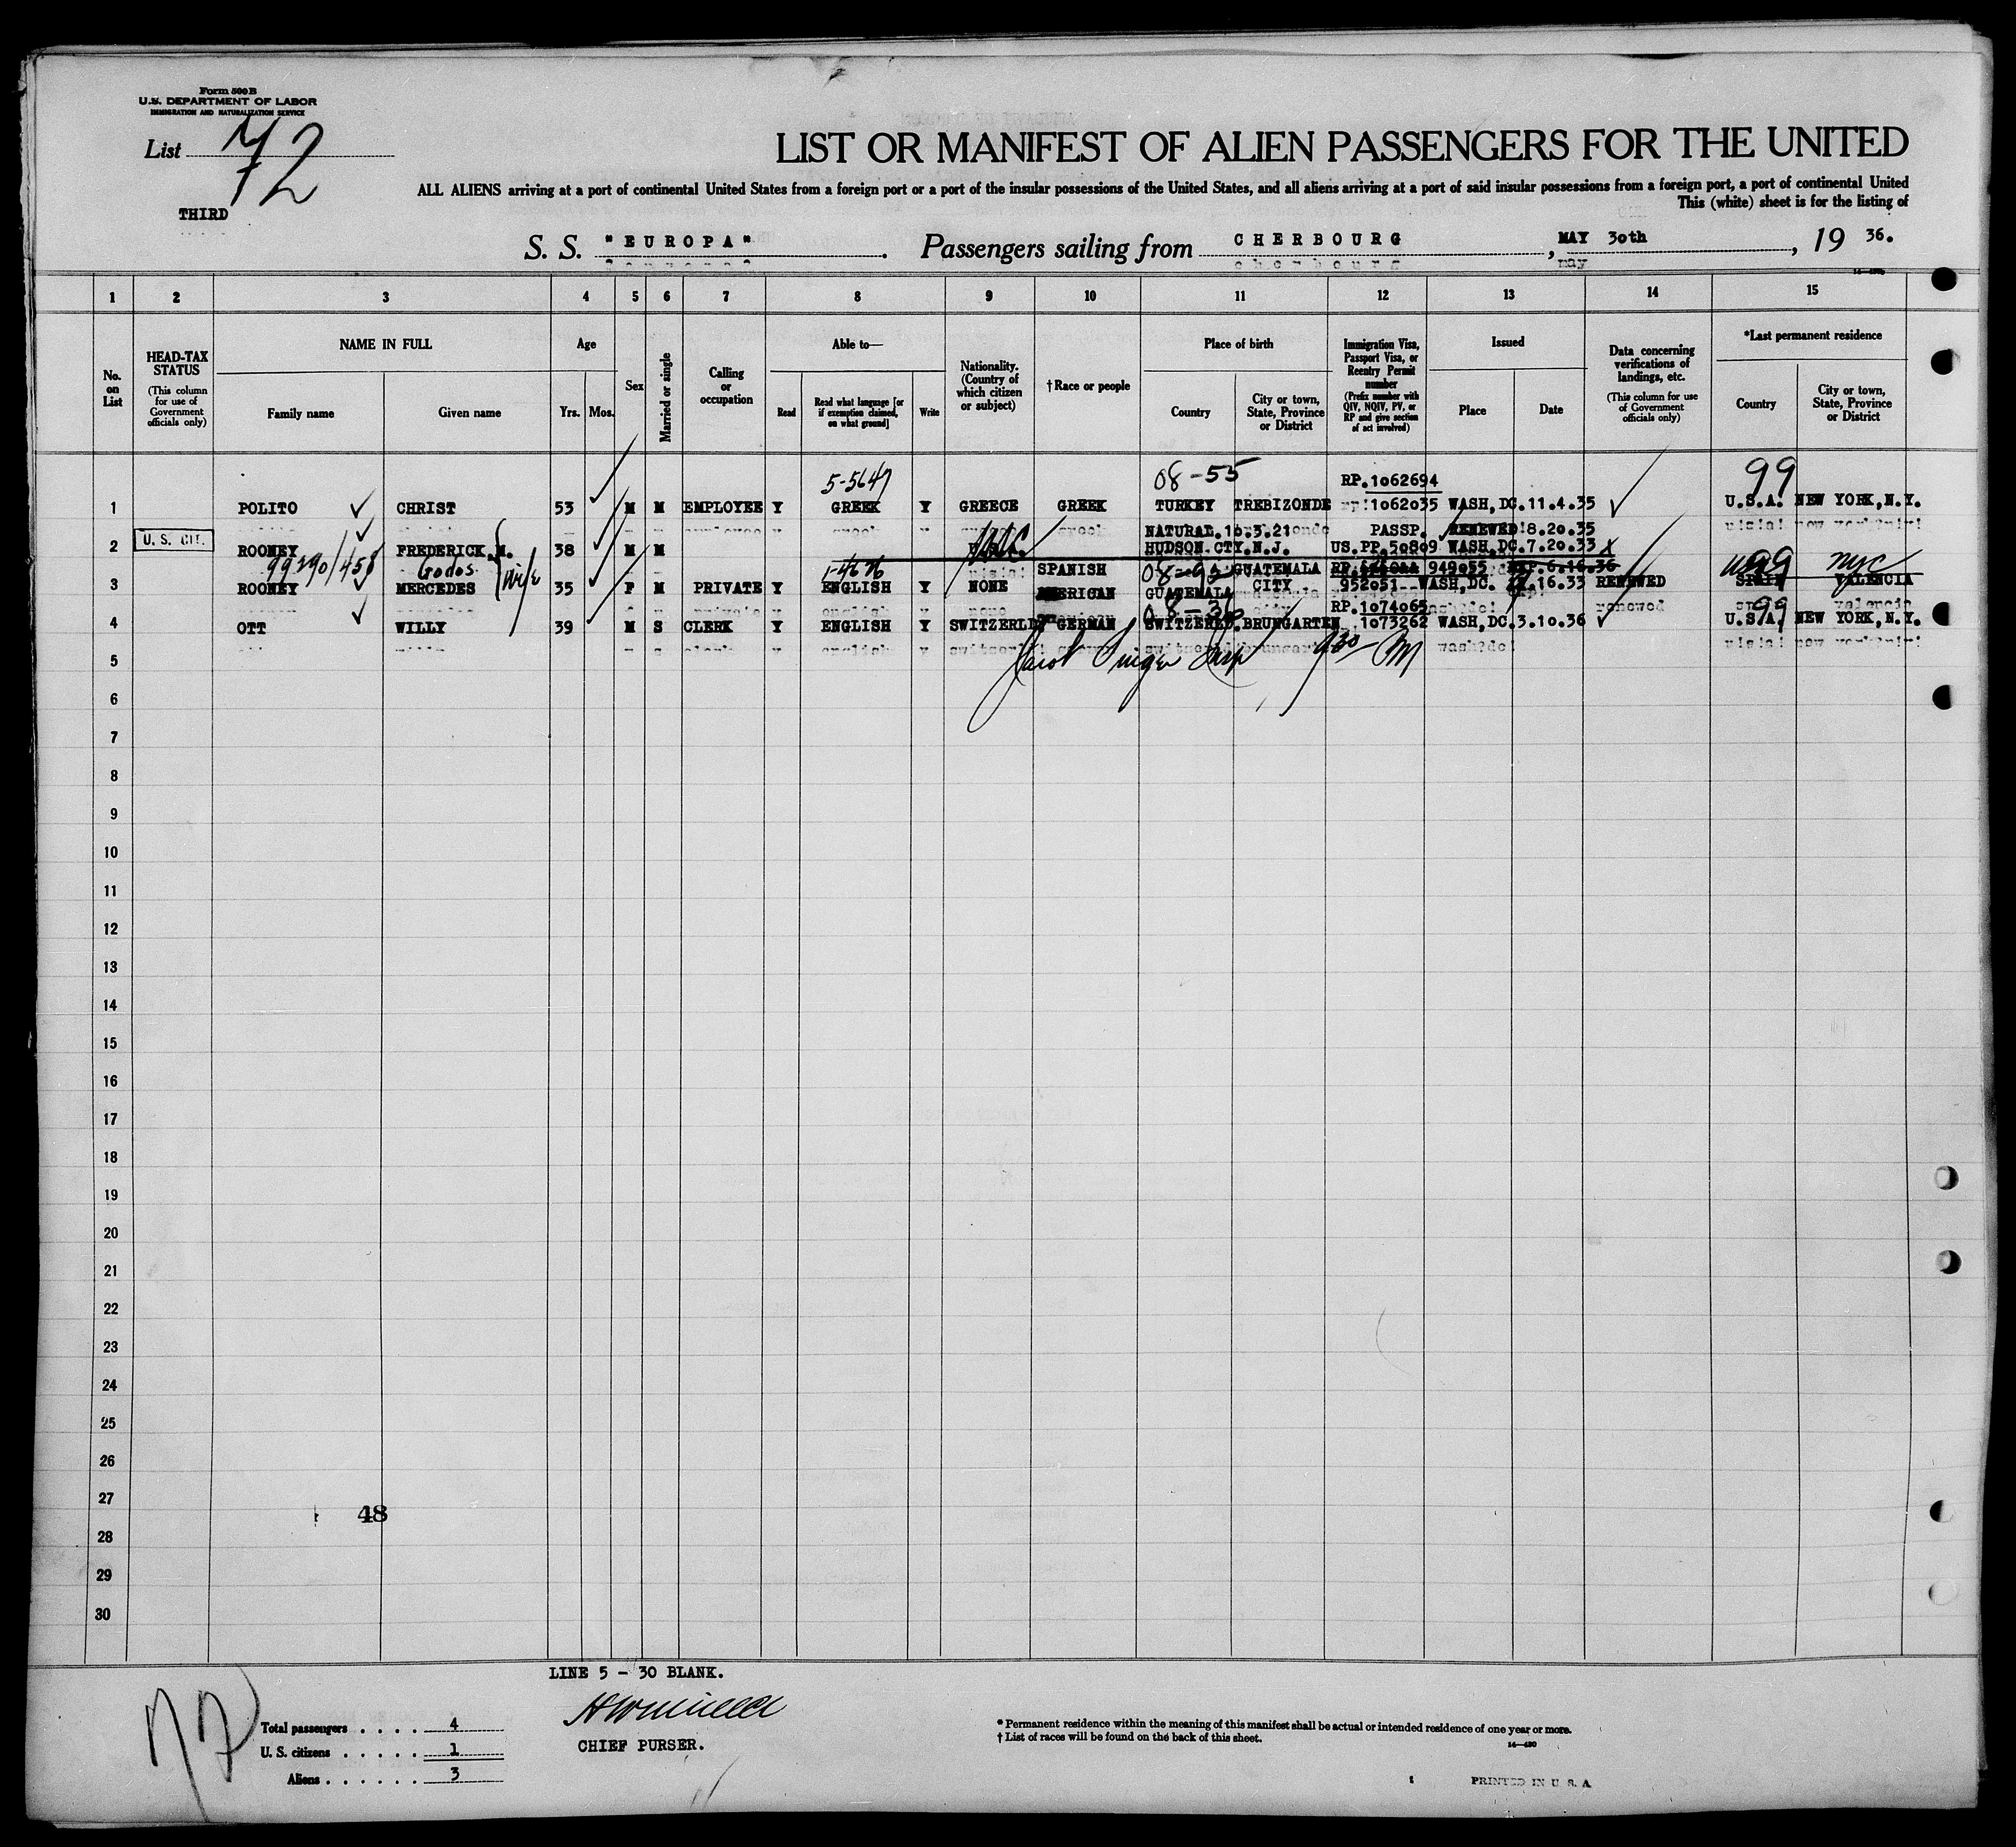 Form 500B
U.S. DEPARTMENT OF LABOR
IMMIGRATION AND NATURALIZATION SERVICE
List 72
LIST OR MANIFEST OF ALIEN PASSENGERS FOR THE UNITED
ALL ALIENS arriving at a port of continental United States from a foreign port or a port of the insular possessions of the United States, and all aliens arriving at a port of said insular possessions from a foreign port, a port of continental United
This (white) sheet is for the listing of
THIRD
S. S. "EUROPA". Passengers sailing from CHERBOURG, MAY 30th, 19 36.
1 2 3 4 5 6 7 8 9 10 11 12 13 14 15
No. on List
HEAD-TAX STATUS
(This column for use of Government officials only)
NAME IN FULL
Family name Given name
Age
Yrs. Mos.
Sex
Married or single
Calling or occupation
Able to—
Read Read what language [or if exemption claimed, on what ground] Write
Nationality. (Country of which citizen or subject)
†Race or people
Place of birth
Country City or town, State, Province or District
Immigration Visa, Passport Visa, or Reentry Permit number
(Prefix number with QIV, NQIV, PV, or RP and give section of act involved)
Issued
Place Date
Data concerning verifications of landings, etc.
(This column for use of Government officials only)
*Last permanent residence
Country City or town, State, Province or District
5-5647 08-55 RP.1062694 99
1 POLITO CHRIST 53 M M EMPLOYEE Y GREEK Y GREECE GREEK TURKEY TREBIZONDE 1062035 WASH,DC. 11.4.35 U.S.A. NEW YORK,N.Y.
NATURAL.10.3.21 PASSP. RENEWED 8.20.35
U. S. CIT.
2 ROONEY FREDERICK M. 38 M M HUDSON CTY.N.J. US.PP.50809 WASH,DC.7.20.33 X
99290/458 Godos wife 1-4676 SPANISH 08-93 GUATEMALA RP. 949055 EXP.6.16.36 99 NYC
3 ROONEY MERCEDES 35 F M PRIVATE Y ENGLISH Y NONE AMERICAN GUATEMALA CITY 952051 WASH,DC. .16.33 RENEWED SPAIN VALENCIA
RP.1074065 99
4 OTT WILLY 39 M S CLERK Y ENGLISH Y SWITZERLD GERMAN SWITZERLD.BRUNGARTEN 1073262 WASH,DC.3.10.36 U.S.A. NEW YORK,N.Y.
5
6
7
8
9
10
11
12
13
14
15
16
17
18
19
20
21
22
23
24
25
26
27
48
28
29
30
LINE 5 - 30 BLANK.
Total passengers . . . . . 4
U. S. citizens . . . . . 1
Aliens . . . . . . 3
CHIEF PURSER.
* Permanent residence within the meaning of this manifest shall be actual or intended residence of one year or more.
† List of races will be found on the back of this sheet.
14—430
PRINTED IN U. S. A.